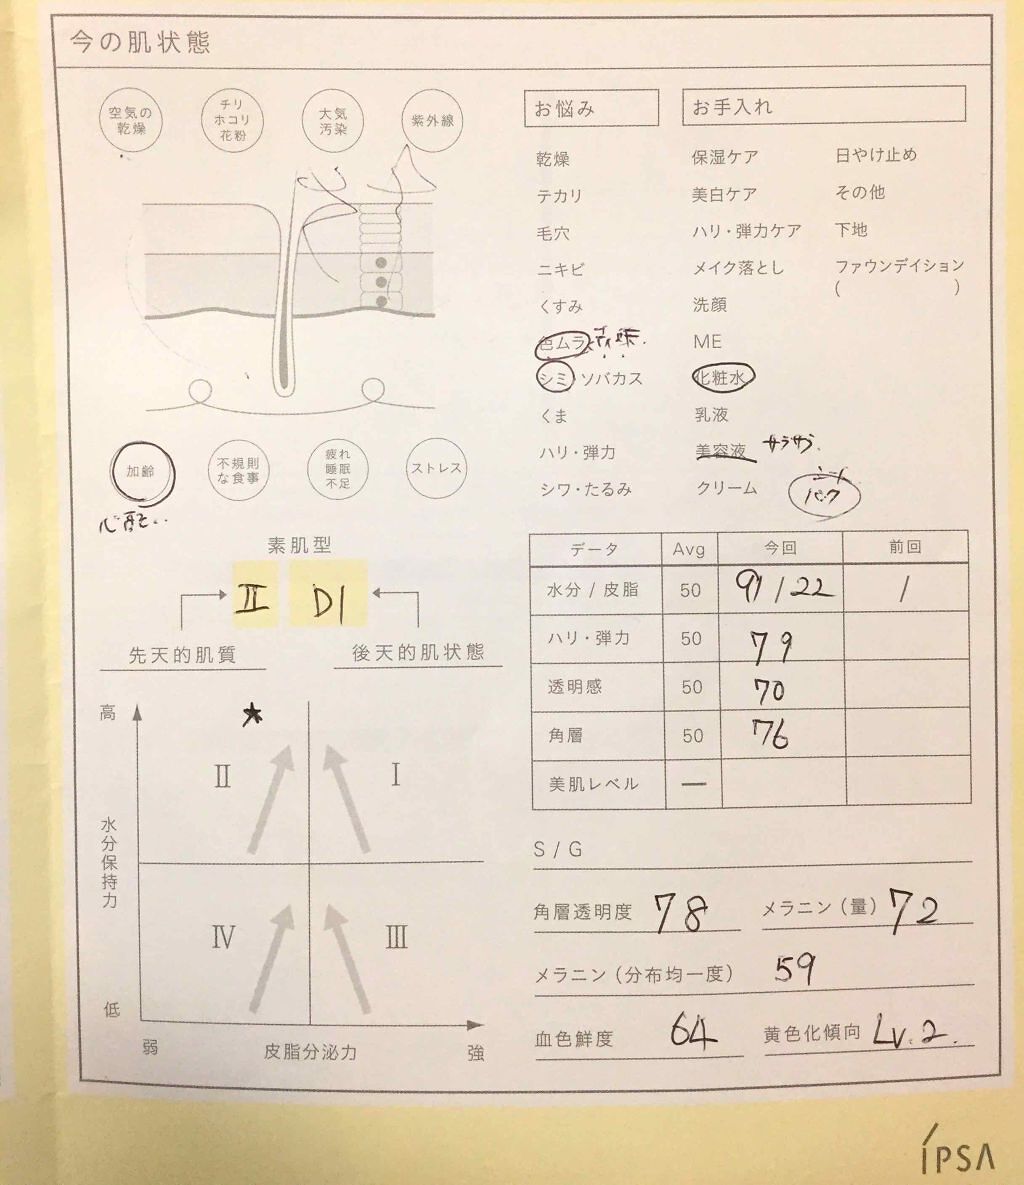 今の肌状態
空気の
乾燥
チリ
ホコリ
花粉
大気
汚染
紫外線
加齢
不規則
な食事
疲れ
睡眠
不足
ストレス
心配..
お悩み
乾燥
テカリ
毛穴
ニキビ
くすみ
色ムラ
シミ・ソバカス
くま
ハリ・弾力
シワ・たるみ
お手入れ
保湿ケア 日やけ止め
美白ケア その他
ハリ・弾力ケア 下地
メイク落とし ファウンデイション
( )
洗顔
ME
化粧水
乳液
美容液
クリーム
シート
パック
素肌型
II D1
先天的肌質 後天的肌状態
高
★
II I
水分保持力
IV III
低
弱 皮脂分泌力 強
データ Avg 今回 前回
水分 / 皮脂 50 91 / 22 /
ハリ・弾力 50 79
透明感 50 70
角層 50 76
美肌レベル ―
S / G
角層透明度 78 メラニン (量) 72
メラニン (分布均一度) 59
血色鮮度 64 黄色化傾向 Lv. 2.
IPSA